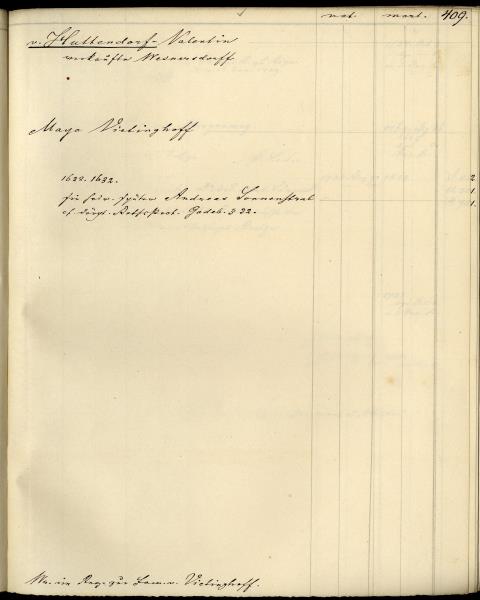 nat. mort. 409.
v. Huttendorf- Valentin
verkaufte Wesnersdorff
Maya Vietinghoff
1622. 1632.
für später Andreas Sonnenstral
cf. Gadeb. 3 32.
2
1
1.
Vietinghoff.